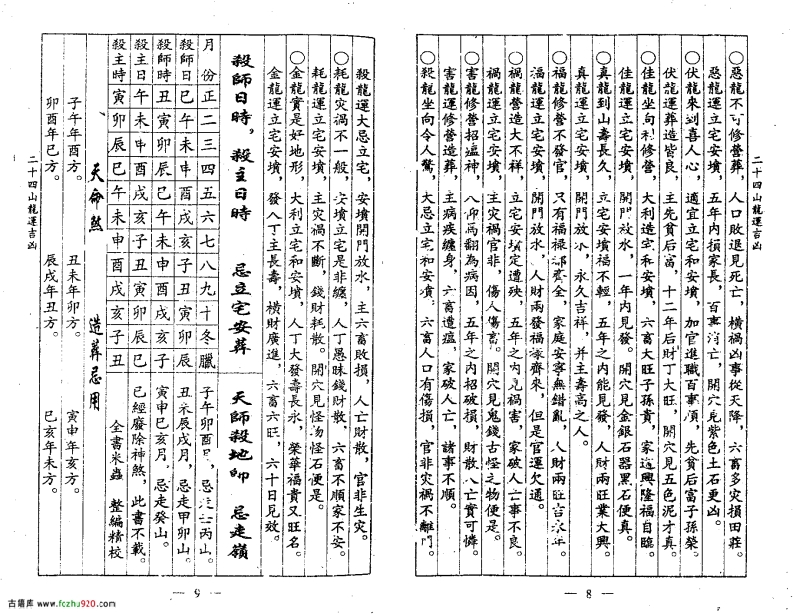 二十四山龍運吉凶
◯惡龍不可修營葬，人口敗退見死亡，橫禍凶事從天降，六畜多災損田莊。
惡龍運立宅安墳，五年內損家長，百事消亡，開穴見紫色土石更凶。
◯伏龍來到喜人心，適宜立宅和安墳，加官進職百事順，先貧后富子孫榮。
伏龍運葬造皆良，主先貧后富，十二年后財丁大旺，開穴見五色泥才真。
◯佳龍坐向利修營，大利造宅和安墳，六畜大旺子孫貴，家道興隆福自臨。
佳龍運立宅安墳，開門放水，一年內見發。開穴見金銀石器黑石便真。
◯真龍到山壽長久，立宅安墳福不輕，五年之內能見發，人財兩旺業大興。
真龍運立宅安墳，開門放水，永久吉祥，并主壽高之人。
◯福龍修營不發官，只有福祿壽全，家庭安寧無錯亂，人財兩旺吉永年。
福龍運立宅安墳，開門放水，人財兩發福祿齊來，但是官運欠通。
◯禍龍營造大不祥，立宅安墳定遭殃，五年之內見禍害，家破人亡事不良。
禍龍運立宅安墳，主災禍官非，傷人傷畜。開穴見鬼錢古怪之物便是。
◯害龍修營招瘟神，為病因，五年之內招破損，財散人亡實可憐。
害龍運修營造葬，主病疾纏身，六畜遭瘟，家破人亡，諸事不順。
◯殺龍坐向令人驚，大忌立宅和安墳，六畜人口有傷損，官非災禍不離門。
— 8 —
殺龍運大忌立宅，安墳開門放水，主六畜敗損，人亡財散，官非生灾。
◯耗龍灾禍不一般，安墳立宅是非纏，人丁愚昧錢財散，六畜不順家不安。
耗龍運立宅安墳，主灾禍不斷，錢財耗散。開穴見怪物怪石便是。
◯金龍實是好地形，大利立宅和安墳，人丁大發壽長永，榮華福貴又旺名。
金龍運立宅安墳，發人丁主長壽，橫財廣進，六畜六旺，六十日見效。
殺師日時，殺主日時 忌立宅安葬
天師殺地師 忌走嶺
月份正二三四五六七八九十冬臘
殺師日巳午未申酉戌亥子丑寅卯辰
殺師時丑寅卯辰巳午未申酉戌亥子
殺主日午未申酉戌亥子丑寅卯辰巳
殺主時寅卯辰巳午未申酉戌亥子丑
子午卯酉月，忌走壬丙山。
丑未辰戌月，忌走甲卯山。
寅申巳亥月，忌走癸山。
已經廢除神煞，此書不載。
全書米蟲 整編精校
天命煞 造葬忌用
子午年酉方。 丑未年卯方。 寅申年亥方。
卯酉年巳方。 辰戌年丑方。 巳亥年未方。
二十四山龍運吉凶
— 9 —
古籍库 www.fczhu920.com